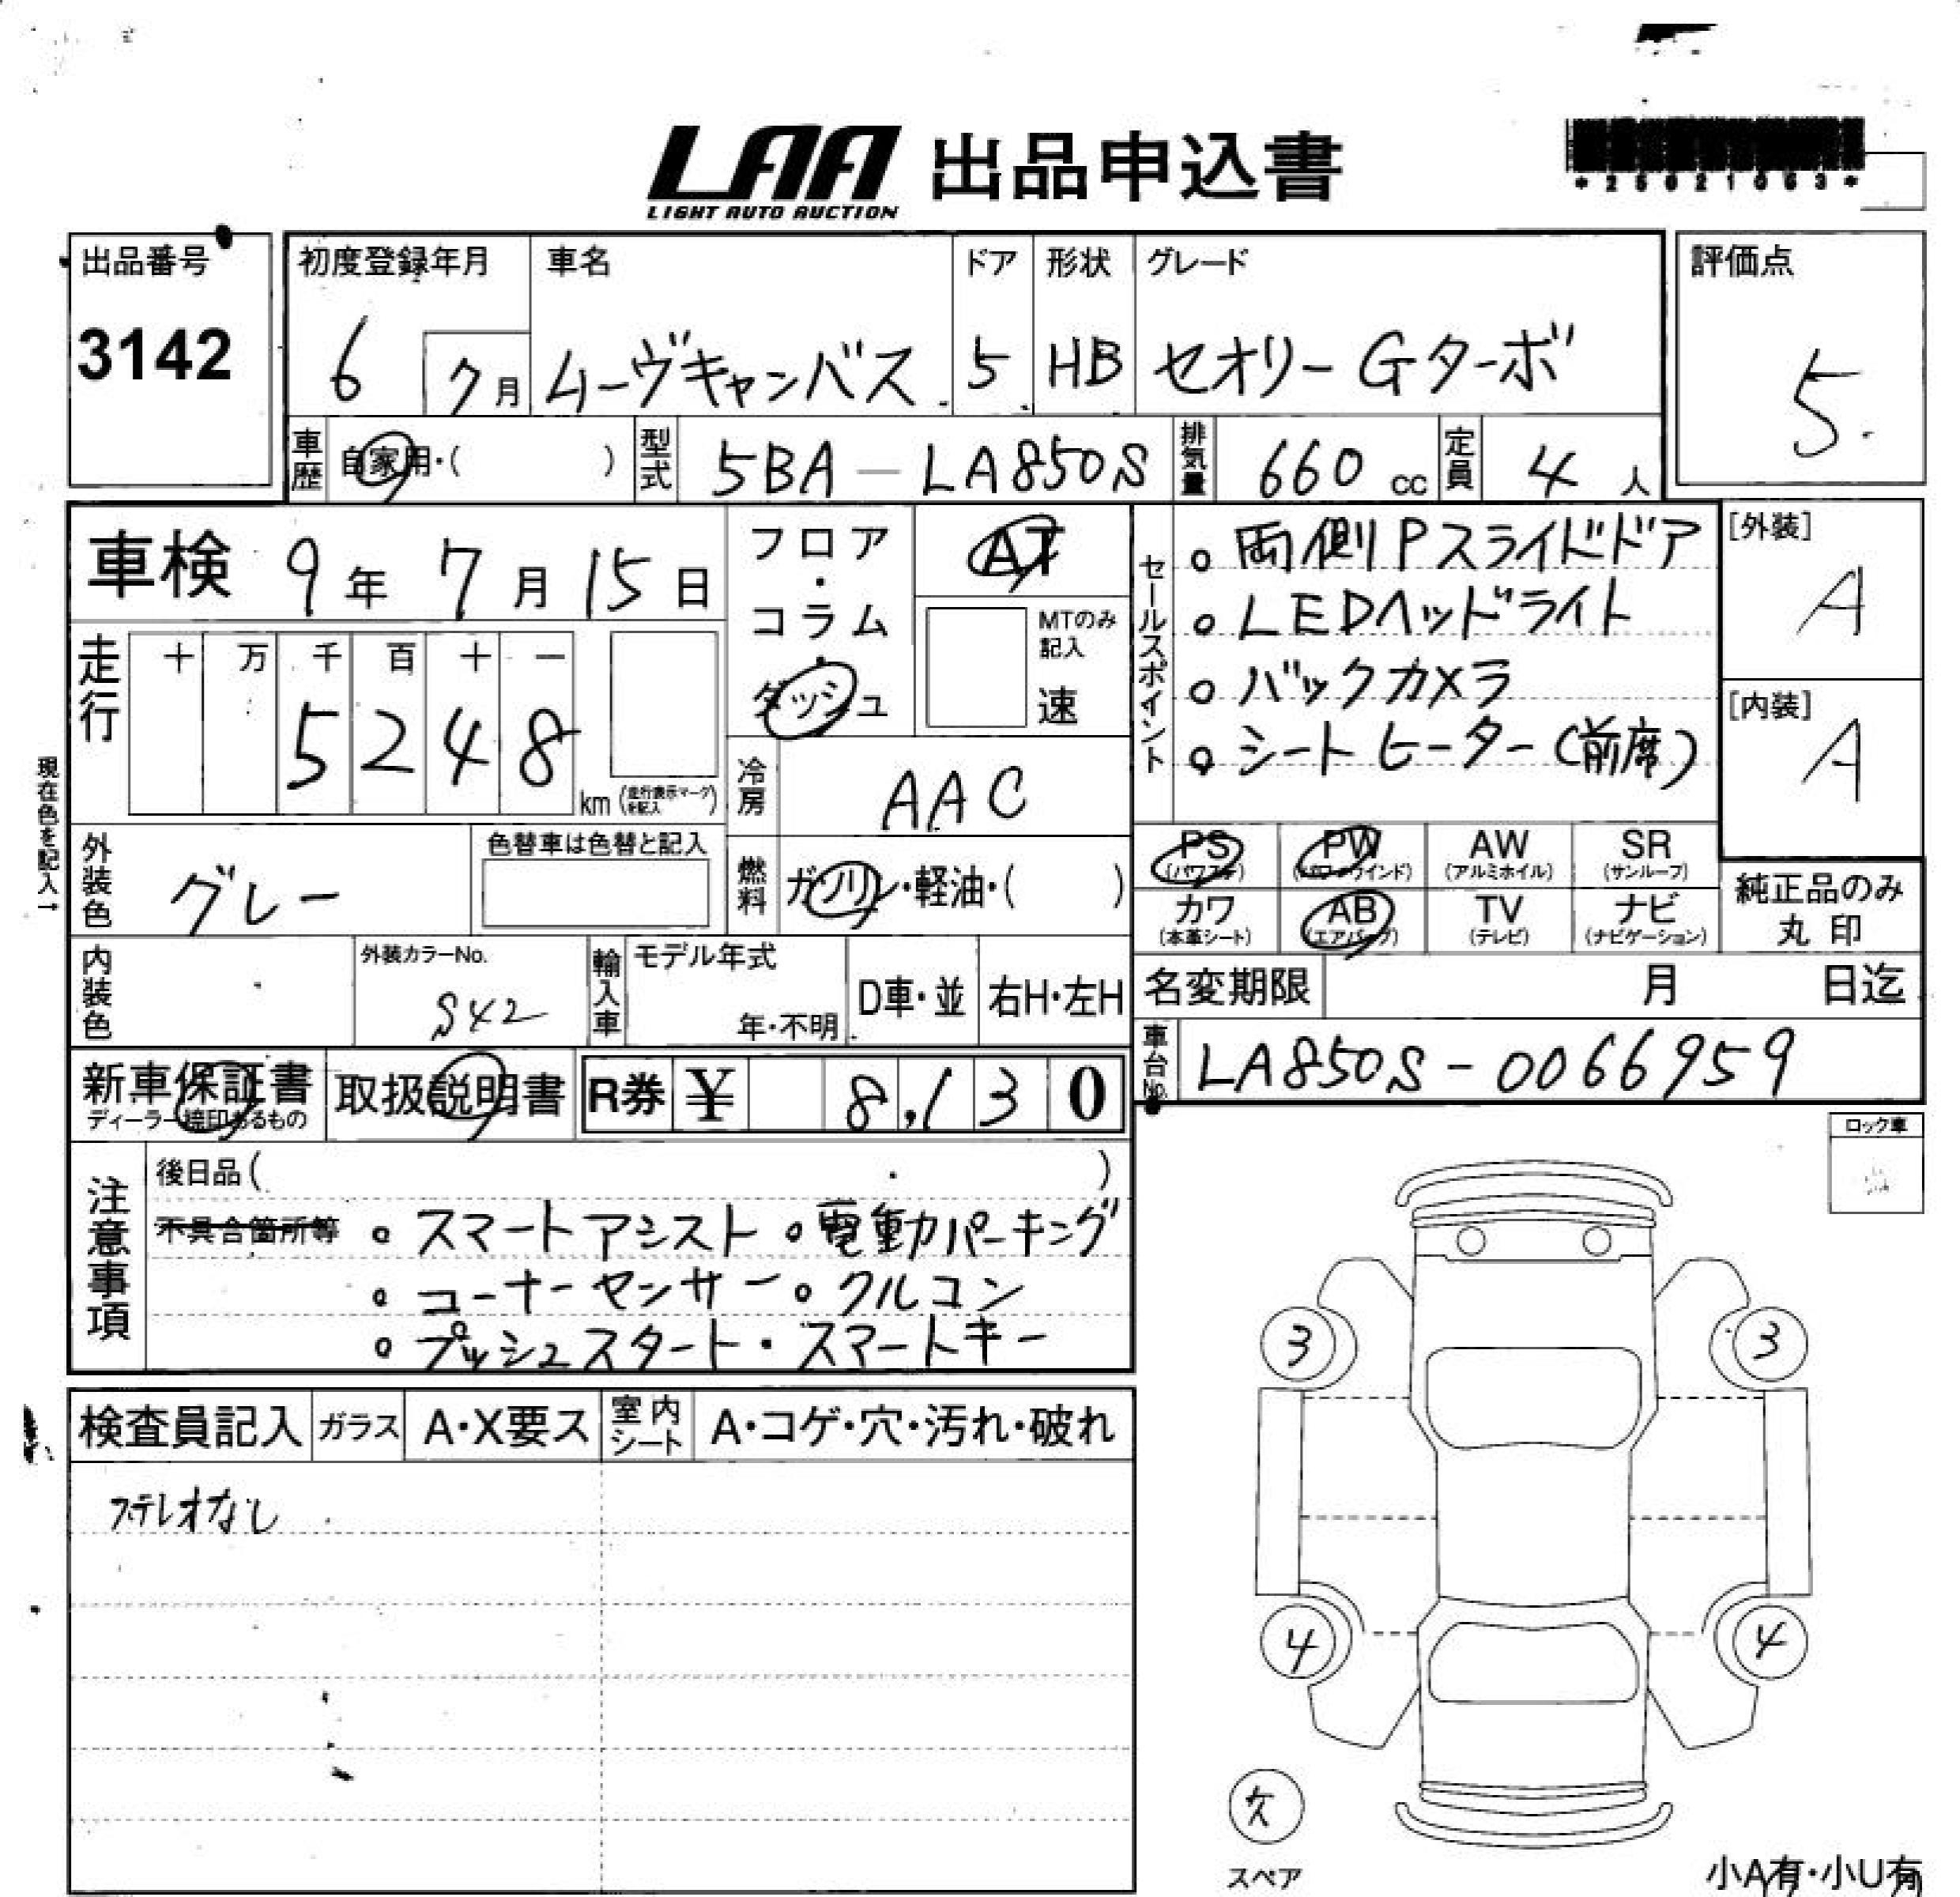 LAA 出品申込書
LIGHT AUTO AUCTION
*25021063*
出品番号
3142
初度登録年月 車名 ドア 形状 グレード
6 7月 ムーヴキャンバス 5 HB セオリーGターボ
評価点
5
車歴 自家用・( ) 型式 5BA-LA850S 排気量 660 cc 定員 4 人
車検 9年 7月 15日
走行 十 万 千 百 十 一
5248
km (走行表示マークを記入)
現在色を記入→
外装色 グレー 色替車は色替と記入
内装色 外装カラーNo. S42 輸入車 モデル年式 年・不明 D車・並 右H・左H
フロア・コラム・ダッシュ
AT
MTのみ記入
速
冷房 AAC
燃料 ガソリン・軽油・( )
セールスポイント
。両側Pスライドドア
。LEDヘッドライト
。バックカメラ
。シートヒーター(前席)
[外装]
A
[内装]
A
PS (パワステ) PW (パワーウインド) AW (アルミホイル) SR (サンルーフ)
カワ (本革シート) AB (エアバッグ) TV (テレビ) ナビ (ナビゲーション)
純正品のみ
丸印
名変期限 月 日迄
車台No. LA850S-0066959
新車保証書
ディーラー捺印あるもの
取扱説明書
R券 ¥ 8,130
注意事項
後日品( )
不具合箇所等 。スマートアシスト 。電動パーキング
。コーナーセンサー 。クルコン
。プッシュスタート・スマートキー
ロック車
検査員記入 ガラス A・X要ス 室内シート A・コゲ・穴・汚れ・破れ
ステレオなし
3 3
4 4
欠
スペア
小A有・小U有